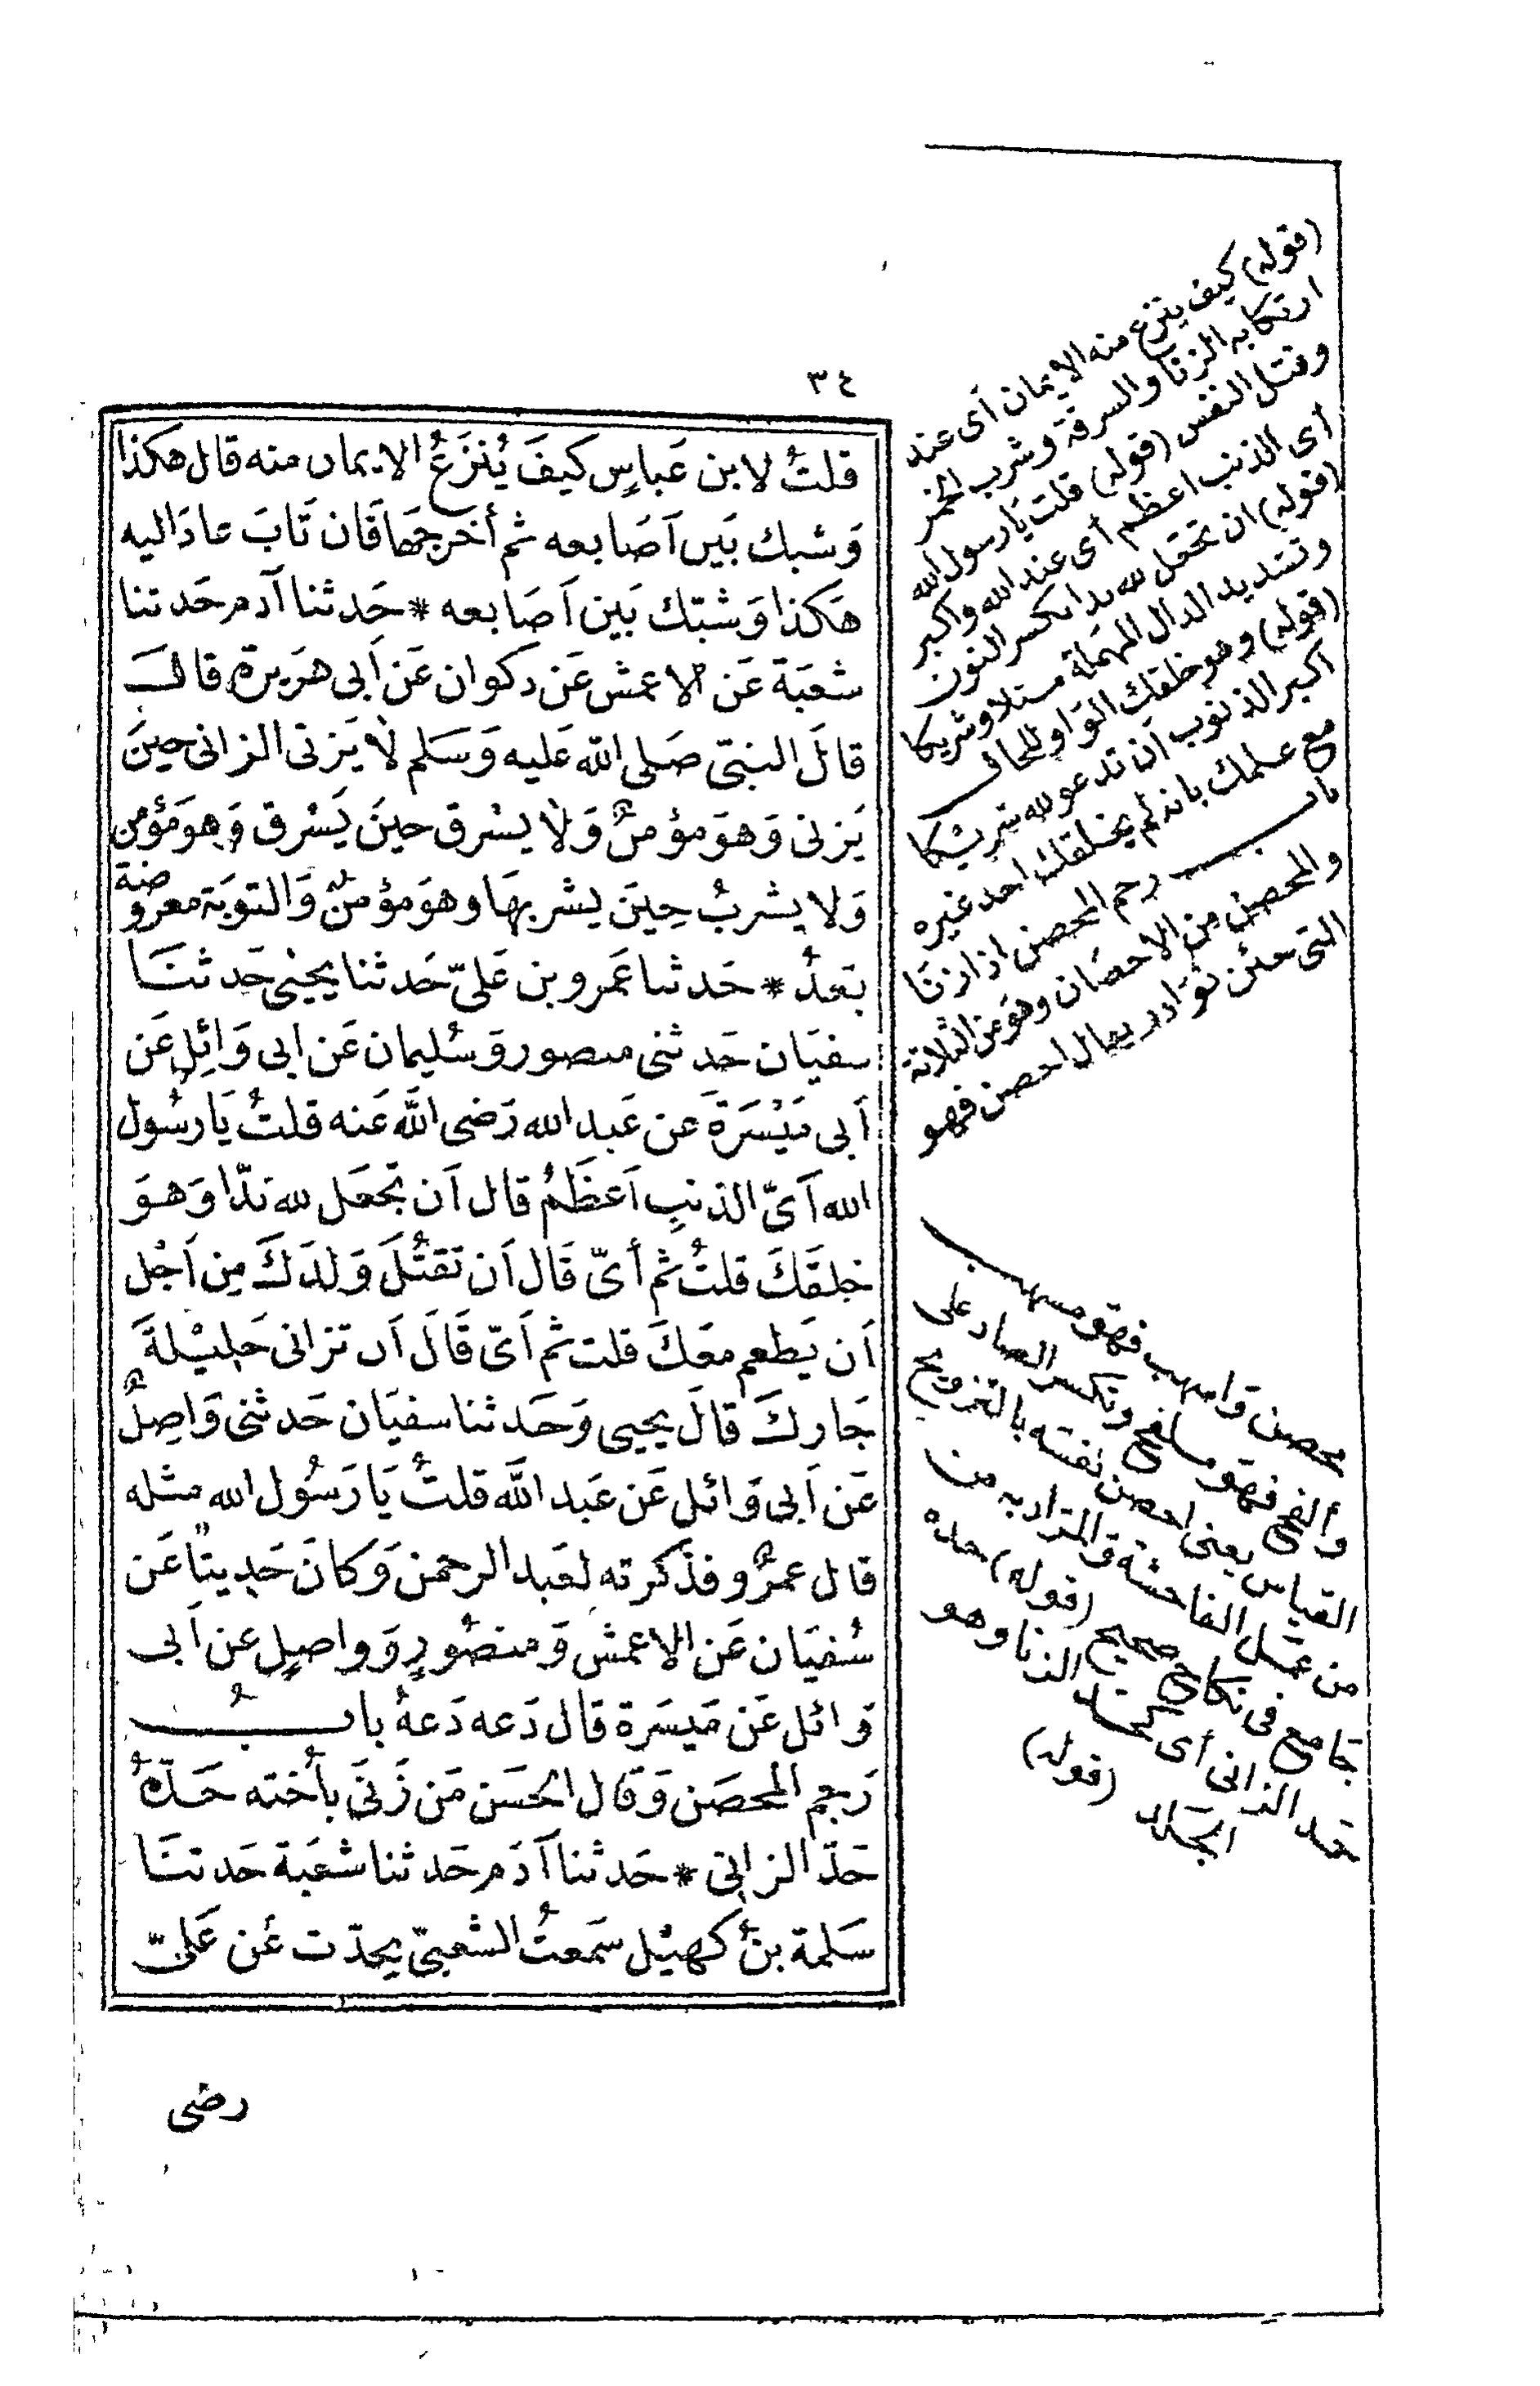 ٣٤
قلتُ لابن عَباسٍ كيفَ يُنزَعُ الايمان منه قال هكذا
وَشبك بَين أصَابعه ثم أخرجهَا فَان تَابَ عادَ اليه
هَكذا وَشبّك بَين أصَابعه * حَدثنا آدم حَدثنا
شعبَة عَن الاعمش عَن ذكوان عَن أبى هرَيرة قالَ
قالَ النبىّ صَلى الله عَليه وَسَلم لاَ يَزنى الزانى حينَ
يَزنى وَهوَ مؤمنٌ وَلاَ يسْرق حينَ يَسْرق وَهوَ مؤمن
وَلا يشربُ حِينَ يشربهَا وهوَ مؤمنٌ وَالتوبَة معروضة
بَعدُ * حَدثنا عَمرو بن عَلىّ حَدثنا يحيٰى حَدثنَا
سفيَان حَدثنى منصور وَسُليمان عَن ابى وَائِلِ عَن
أبى مَيْسَرَةَ عَن عَبد الله رَضى اللَّه عَنه قلتُ يَا رسُول
الله أىّ الذنبِ أعظَمُ قال أن تجعَل لله ندّا وَهوَ
خلقَكَ قلتُ ثم أىّ قَال أن تقتُلَ وَلدَكَ مِن أجْل
أن يَطعم معَكَ قلت ثم أىّ قَالَ أن تزانى حَليْلةَ
جَاركَ قالَ يحيى وَحَدثنا سفيَان حَدثنى وَاصِلٌ
عَن أبى وَائل عَن عَبد اللَّه قلتُ يَا رَسُول الله مثله
قال عمرٌو فذَكرته لعَبد الرحمٰن وَكانَ حَديثاً عَن
سُفيَان عَن الاعمش وَمنصُورٍ وَواصِلٍ عن أبى
وَائل عَن مَيسَرَة قال دَعه دَعهُ بابُ
رَجم المحصَن وَقَال الحسَن مَن زَنَى بأخته حَدّهُ
حَدّ الزانِى * حَدثنا آدَم حَدثنا شعبَة حَدثنَا
سَلمة بنُ كهيْل سَمعتُ الشعبىّ يحدّث عَن عَلىّ
رضى
(قوله) كيف ينزع منه الايمان أى عند
ارتكابه الزنا والسرقة وشرب الخمر
وقتل النفس (قوله) قلت يَا رسول الله
أى الذنب اعظم أى عند الله واكبر
(قوله) ان تجعَل لله ندا بكسر النون
وتشديد الدال المهمَلة مثلا وشريكا
(قوله) وهو خلقك الوَاو للحال
اكبر الذنوب أن تدعو لله شريكا
مع علمك بانه لم يخلقك احد غيره
باب رجم المحصن اذا زنَا
والمحصن من الاحصَان وهوَ من الثلاثة
التى جئن نوَادر يقال احصن فهو
محصن وَاسهب فهوَ مسهب
وألفج فهوَ ملفج وتكسر الصاد على
القياس يعنى احصن نفسَه بالتزويج
من عمَل الفاحشة وَالمرَاد به من
جَامع فى نكاح صحيح (قوله) حدّه
حَد الزانى أى كحَد الزنا وهو
الجَلد (قوله)